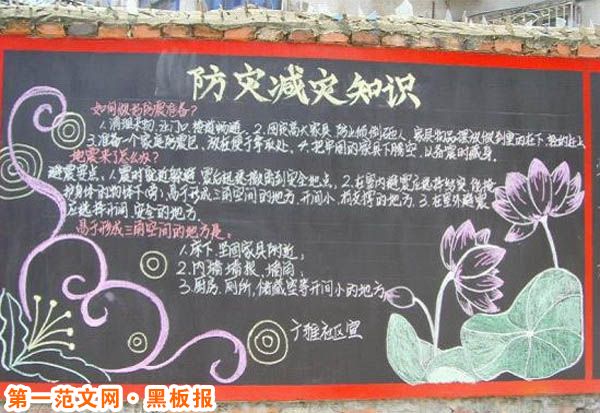 防灾减灾知识
如何做好防震准备?
1.清理杂物,让门口、楼道畅通。2.固定高大家具,防止倾倒砸人,家居物品摆放做到重的在下,轻的在上
3.准备一个家庭防震包,放在便于拿取处。4.把牢固的家具下腾空,以备震时藏身。
地震来了怎么办?
避震要点:1.震时就近躲避,震后迅速撤离到安全地点。2.在室内避震应选择结实、能掩
护身体的物体下(旁)、易于形成三角空间的地方,开间小、有支撑的地方。3.在室外避震
应选择开阔、安全的地方。
易于形成三角空间的地方是。
1.床下、坚固家具附近;
2.内墙墙根、墙角;
3.厨房、厕所、储藏室等开间小的地方。
广雅社区宣
第一范文网·黑板报